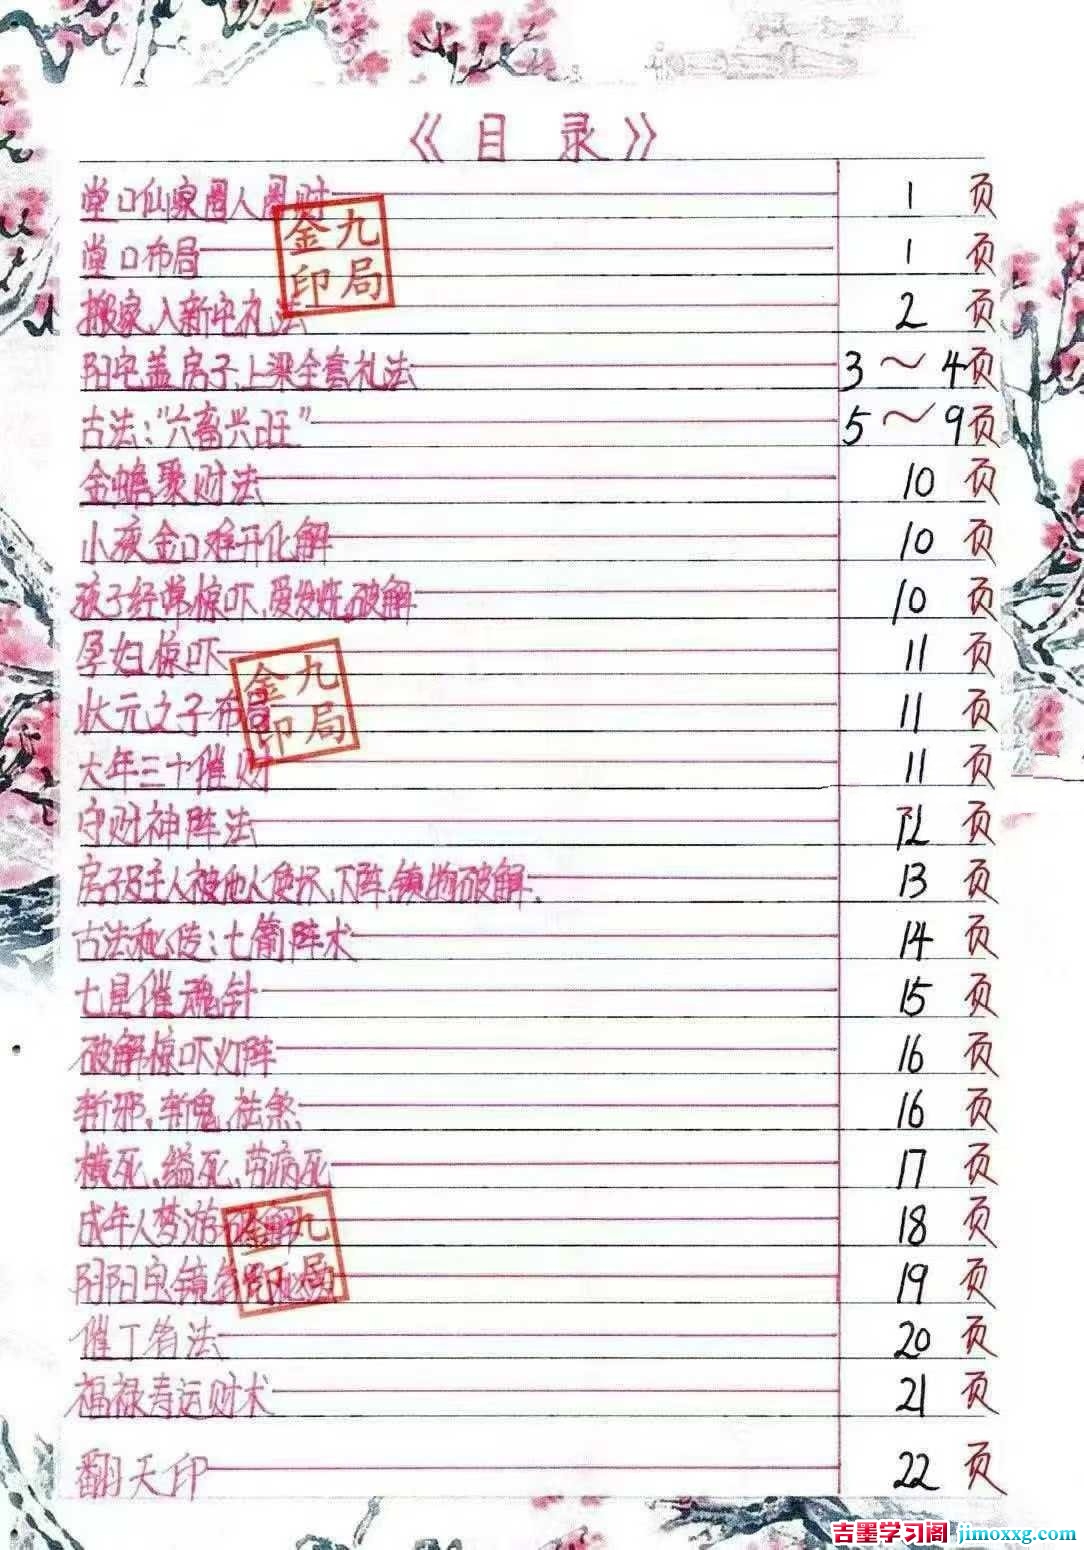 《目录》
堂口仙家圈人圈财 1 页
堂口布局 1 页
搬家入新宅礼法 2 页
阳宅盖房子、上梁全套礼法 3～4 页
古法："六畜兴旺" 5～9 页
金蟾聚财法 10 页
小孩金口难开化解 10 页
孩子经常惊吓、爱发烧破解 10 页
孕妇惊吓 11 页
状元之子布局 11 页
大年三十催财 11 页
守财神阵法 12 页
房子及主人被他人使坏、下阵、镇物破解. 13 页
古法秘传：七箭阵术 14 页
七星催魂针 15 页
破解惊吓灯阵 16 页
斩邪、斩鬼、祛煞、 16 页
横死、缢死、劳病死 17 页
成年人梦游破解 18 页
阴阳宅镜 19 页
催丁 法 20 页
福禄寿运财术 21 页
翻天印 22 页
金九
印局
金九
印局
金九
印局
吉墨学习阁 jimoxxg.com